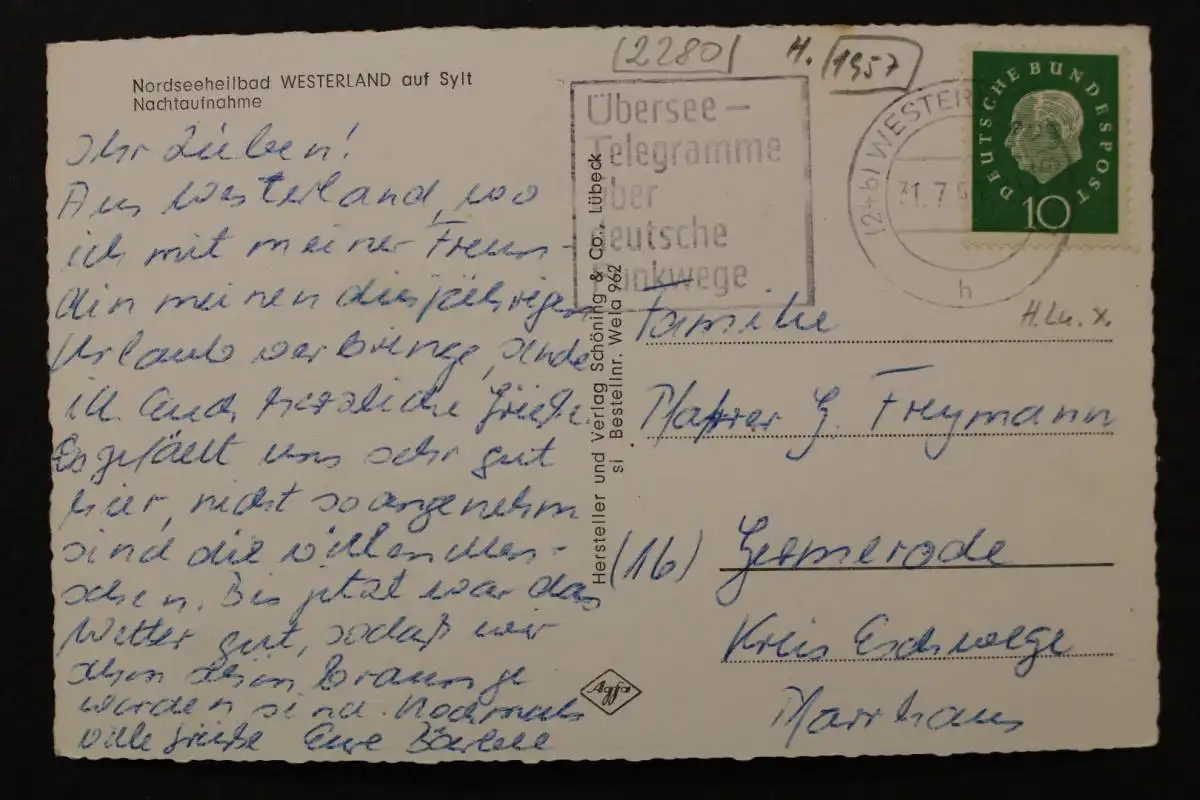 (2280)
H. (1957)
Nordseeheilbad WESTERLAND auf Sylt
Nachtaufnahme
Übersee-
Telegramme
über
deutsche
Funkwege
(24b) WESTER
31.7.5
h
DEUTSCHE BUNDESPOST
10
H.Lu. X.
Ihr Lieben!
Aus Westerland, wo
ich mit meiner Freun-
din meinen diesjährigen
Urlaub verbringe, sende
ich Euch herzliche Grüße.
Es gefällt uns sehr gut
hier, nicht so angenehm
sind die vielen Men-
schen. Bis jetzt war das
Wetter gut, sodaß wir
schon schön braun ge
worden sind. Nochmals
viele Grüße Eure Bärbel
Hersteller und Verlag Schöning & Co., Lübeck
si Bestellnr. Wela 962
Agfa
Familie
Pfarrer G. Freymann
(16) Germerode
Kreis Eschwege
Pfarrhaus